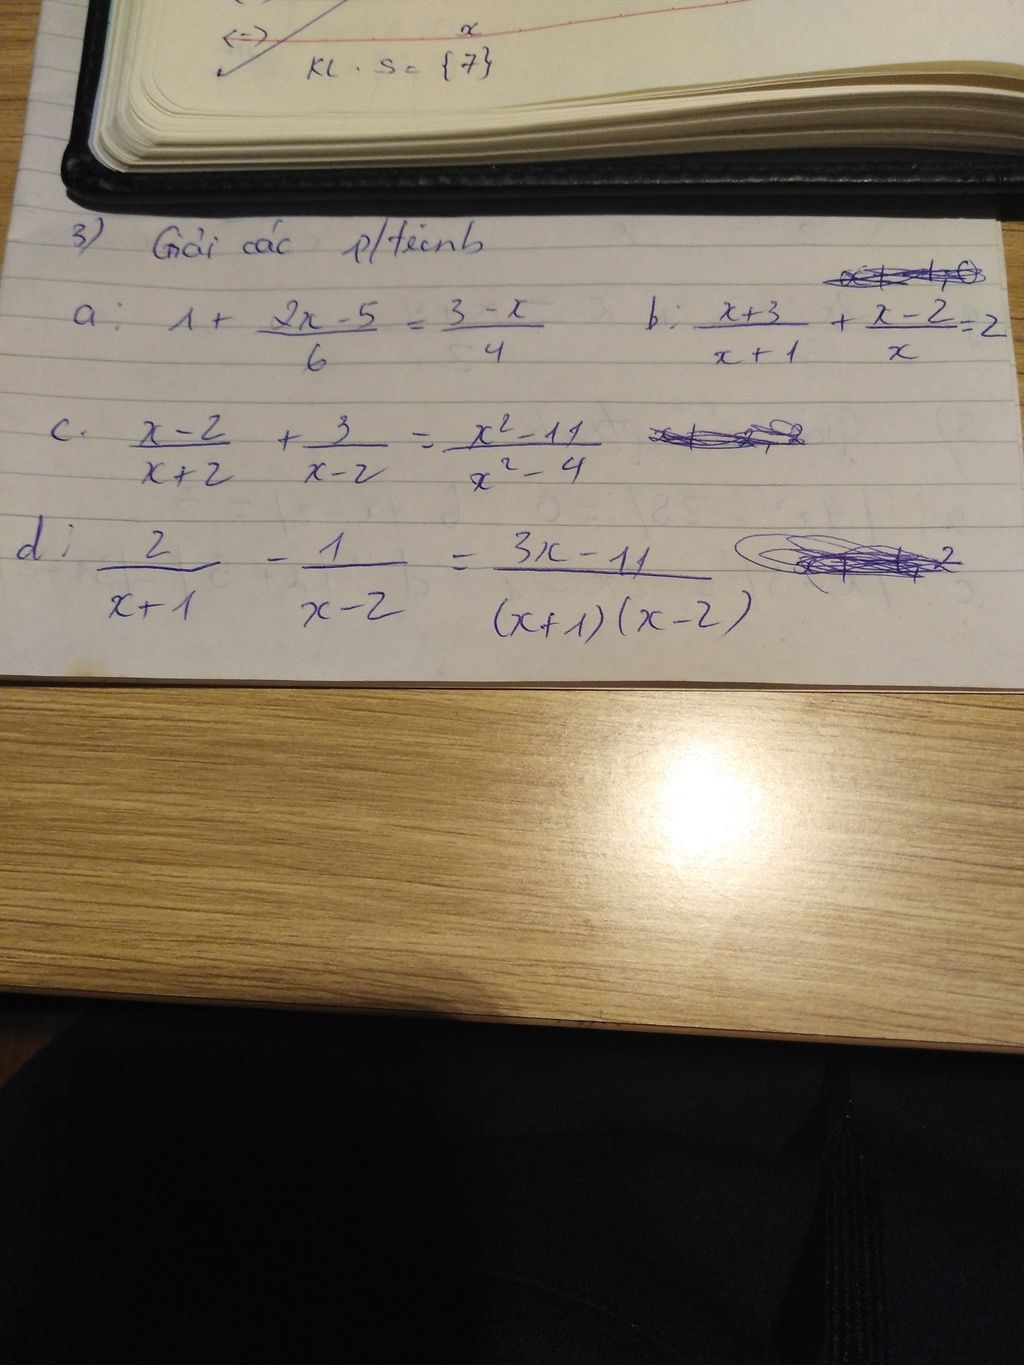 <=> x
KL . S = {7}
3) Giải các p/trình
a: 1 + (2x - 5)/6 = (3 - x)/4 b: (x+3)/(x+1) + (x-2)/x = 2
c. (x-2)/(x+2) + 3/(x-2) = (x² - 11)/(x² - 4)
d: 2/(x+1) - 1/(x-2) = (3x - 11)/((x+1)(x-2))